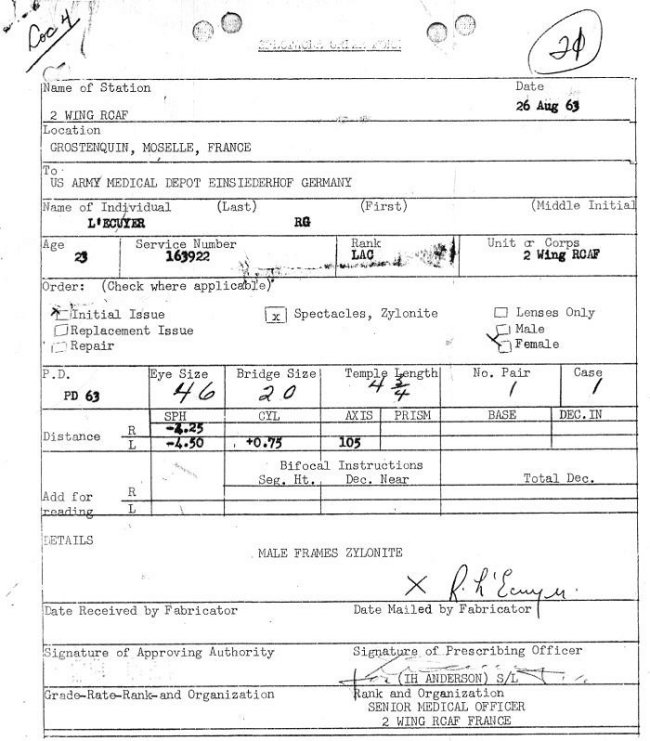 Loc 4
21
Name of Station Date
2 WING RCAF 26 Aug 63
Location
GROSTENQUIN, MOSELLE, FRANCE
To
US ARMY MEDICAL DEPOT EINSIEDERHOF GERMANY
Name of Individual (Last) (First) (Middle Initial
L'ECUYER RG
Age Service Number Rank Unit or Corps
23 163922 LAC 2 Wing RCAF
Order: (Check where applicable)
Initial Issue x Spectacles, Zylonite Lenses Only
Replacement Issue Male
Repair Female
P.D. Eye Size Bridge Size Temple Length No. Pair Case
PD 63 46 20 4 3/4 1 1
SPH CYL AXIS PRISM BASE DEC.IN
Distance R -4.25
L -4.50 +0.75 105
Bifocal Instructions
Seg. Ht. Dec. Near Total Dec.
Add for reading R
L
DETAILS
MALE FRAMES ZYLONITE
X R. L'Ecuyer.
Date Received by Fabricator Date Mailed by Fabricator
Signature of Approving Authority Signature of Prescribing Officer
(IH ANDERSON) S/L
Grade-Rate-Rank-and Organization Rank and Organization
SENIOR MEDICAL OFFICER
2 WING RCAF FRANCE